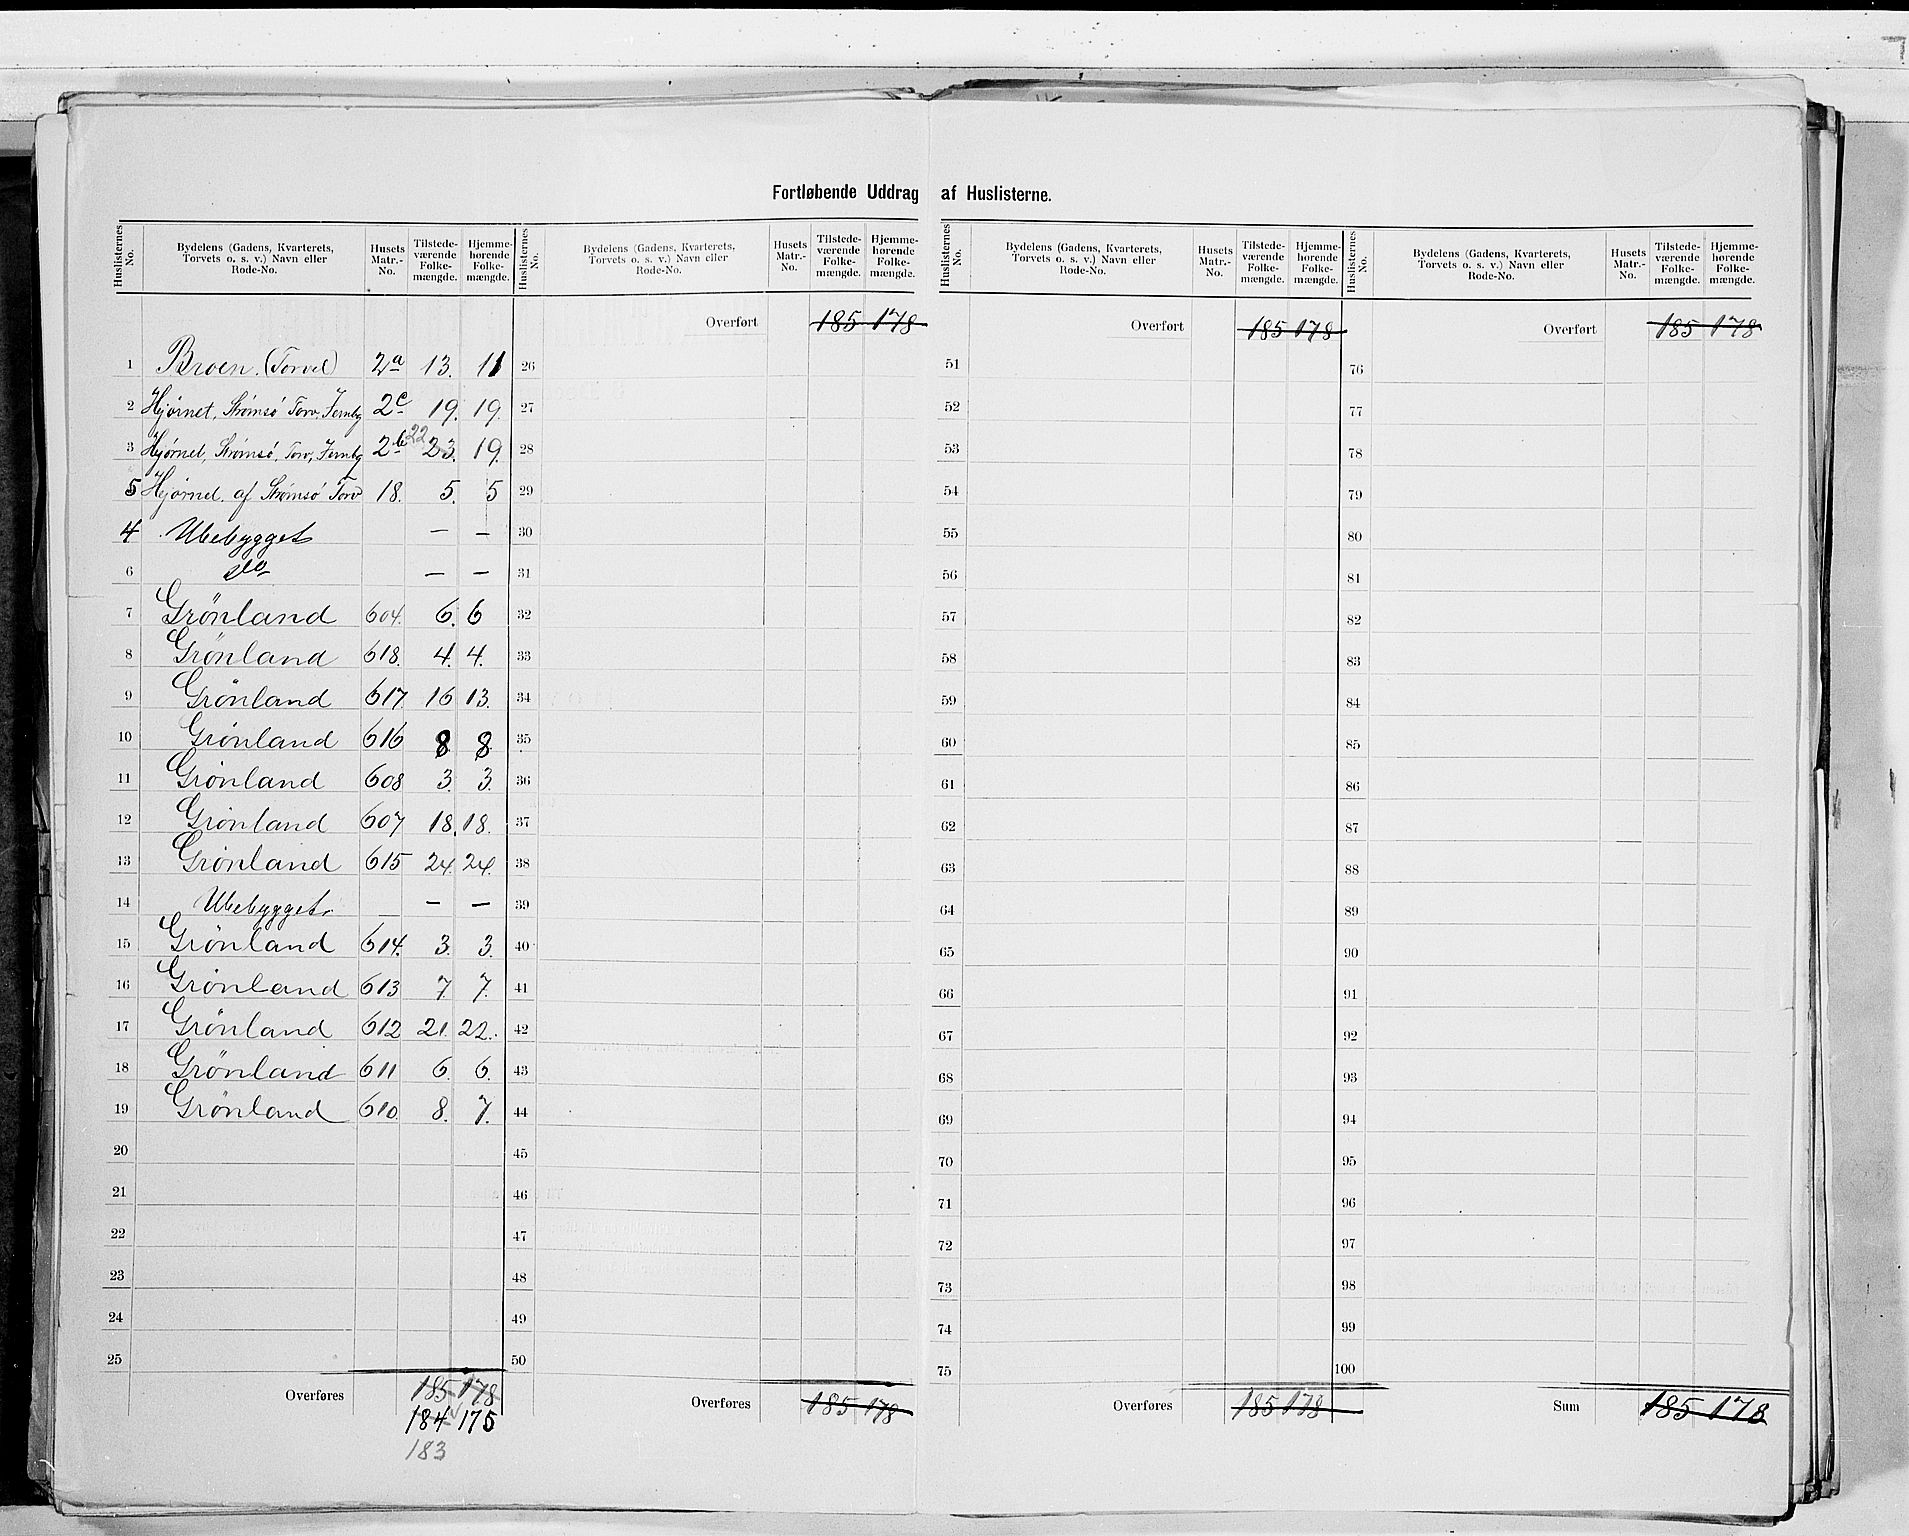 Fortløbende Uddrag af Huslisterne.
Huslisternes No. | Bydelens (Gadens, Kvarterets, Torvets o. s. v.) Navn eller Rode-No. | Husets Matr.-No. | Tilstedeværende Folkemængde. | Hjemmehørende Folkemængde.
1 Broen. (Torvet) 2a 13. 11
2 Hjörnet, Strømsö Torv, Jernbg 2c 19. 19.
3 Hjörnet, Strømsö, Torv, Jernbg 2b 22 23. 19.
5 Hjörnet. af Strømsö Torv 18. 5. 5
4 Ubebygget — —
6 do — —
7 Grönland 604. 6. 6
8 Grönland 618. 4. 4.
9 Grönland 617. 16 13.
10 Grönland 616 8 8.
11 Grönland 608 3. 3.
12 Grönland 607 18. 18.
13 Grönland 615 24. 24.
14 Ubebygget. — —
15 Grönland 614. 3. 3.
16 Grönland 613 7 7.
17 Grönland 612 21. 22.
18 Grönland 611 6. 6.
19 Grönland 610. 8. 7.
20
21
22
23
24
25
Overføres 185 178
184 175
183
Huslisternes No. | Bydelens (Gadens, Kvarterets, Torvets o. s. v.) Navn eller Rode-No. | Husets Matr.-No. | Tilstedeværende Folkemængde. | Hjemmehørende Folkemængde.
Overført 185 178
26
27
28
29
30
31
32
33
34
35
36
37
38
39
40
41
42
43
44
45
46
47
48
49
50
Overføres 185 178
Huslisternes No. | Bydelens (Gadens, Kvarterets, Torvets o. s. v.) Navn eller Rode-No. | Husets Matr.-No. | Tilstedeværende Folkemængde. | Hjemmehørende Folkemængde.
Overført 185 178
51
52
53
54
55
56
57
58
59
60
61
62
63
64
65
66
67
68
69
70
71
72
73
74
75
Overføres 185 178
Huslisternes No. | Bydelens (Gadens, Kvarterets, Torvets o. s. v.) Navn eller Rode-No. | Husets Matr.-No. | Tilstedeværende Folkemængde. | Hjemmehørende Folkemængde.
Overført 185 178
76
77
78
79
80
81
82
83
84
85
86
87
88
89
90
91
92
93
94
95
96
97
98
99
100
Sum 185 178